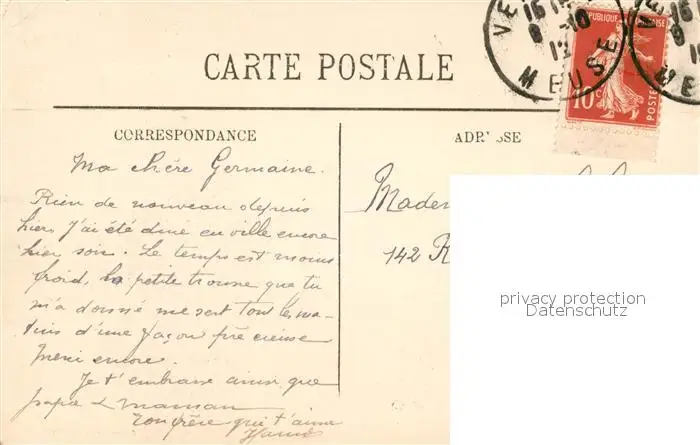 CARTE POSTALE
CORRESPONDANCE
ADR SSE
VE
16
8 10
12
MEUSE
RÉPUBLIQUE FRANÇAISE
10c
POSTES
VE
16
9
ME
Ma chère Germaine.
Rien de nouveau depuis
hier, J'ai été dîné en ville encore
hier soir. Le temps est moins
froid, la petite trousse que tu
m'a donné me sert tout les ma-
tins d'une façon précieuse
Merci encore.
Je t'embrasse ainsi que
papa & maman
Ton frère qui t'aime
Mader
142 R
privacy protection
Datenschutz